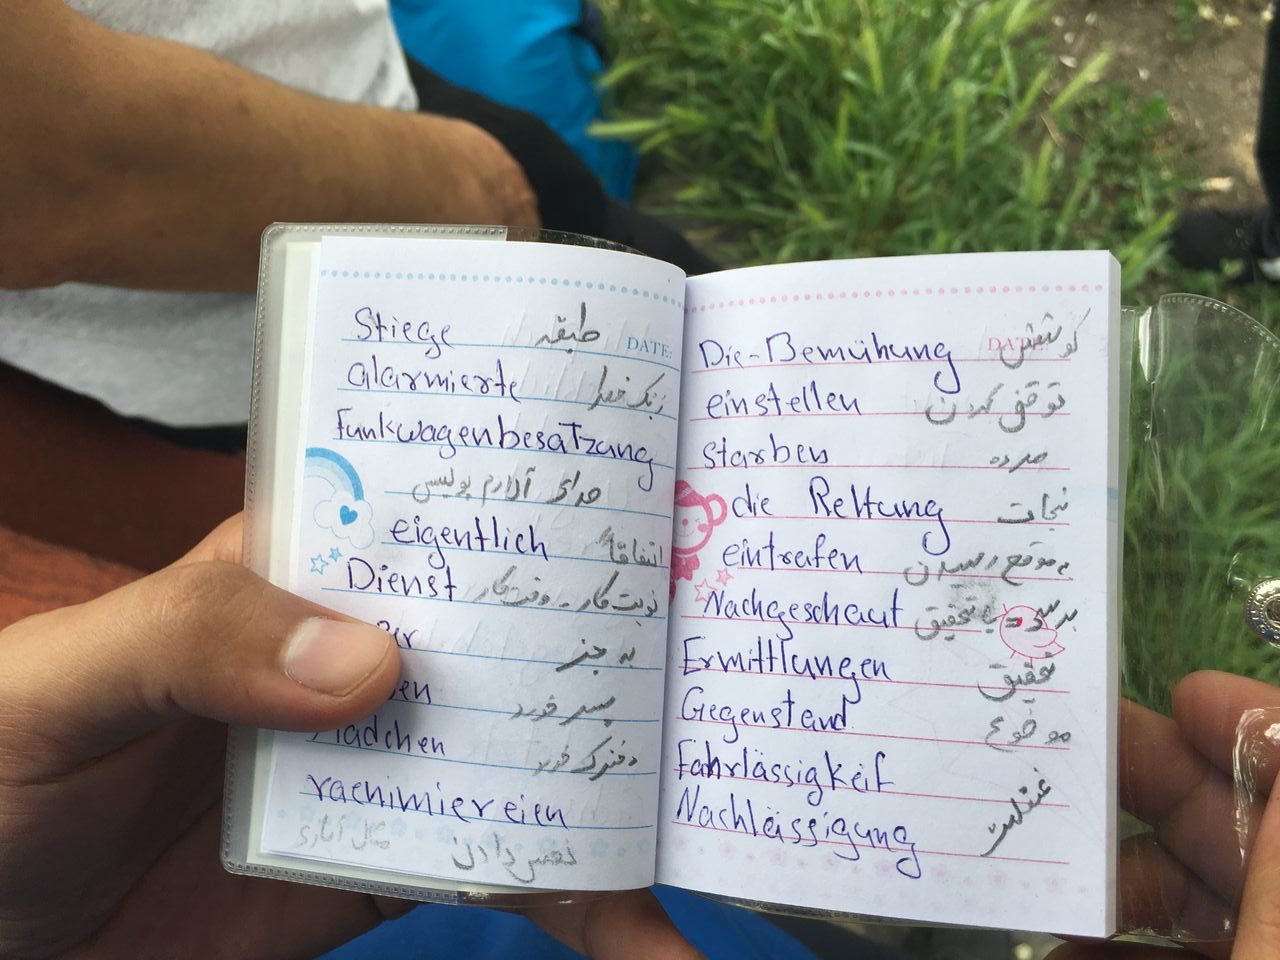 Stiege طبقه DATE:
alarmierte زنگ خطر
Funkwagenbesatzung
صدای آلارم پولیس
eigentlich اتفاقاً
Dienst نوبت کار - وقت کار
به جز
پسر خورد
ädchen دخترک خورد
raenimiereien
نفس دادن
Die-Bemühung کوشش DATE:
einstellen توقف کردن
starben مرده
die Rettung نجات
eintreffen به موقع رسیدن
Nachgeschaut بررسی = یا تحقیق
Ermittlungen تحقیق
Gegenstand موضوع
Fahrlässigkeit
Nachlässigung غفلت